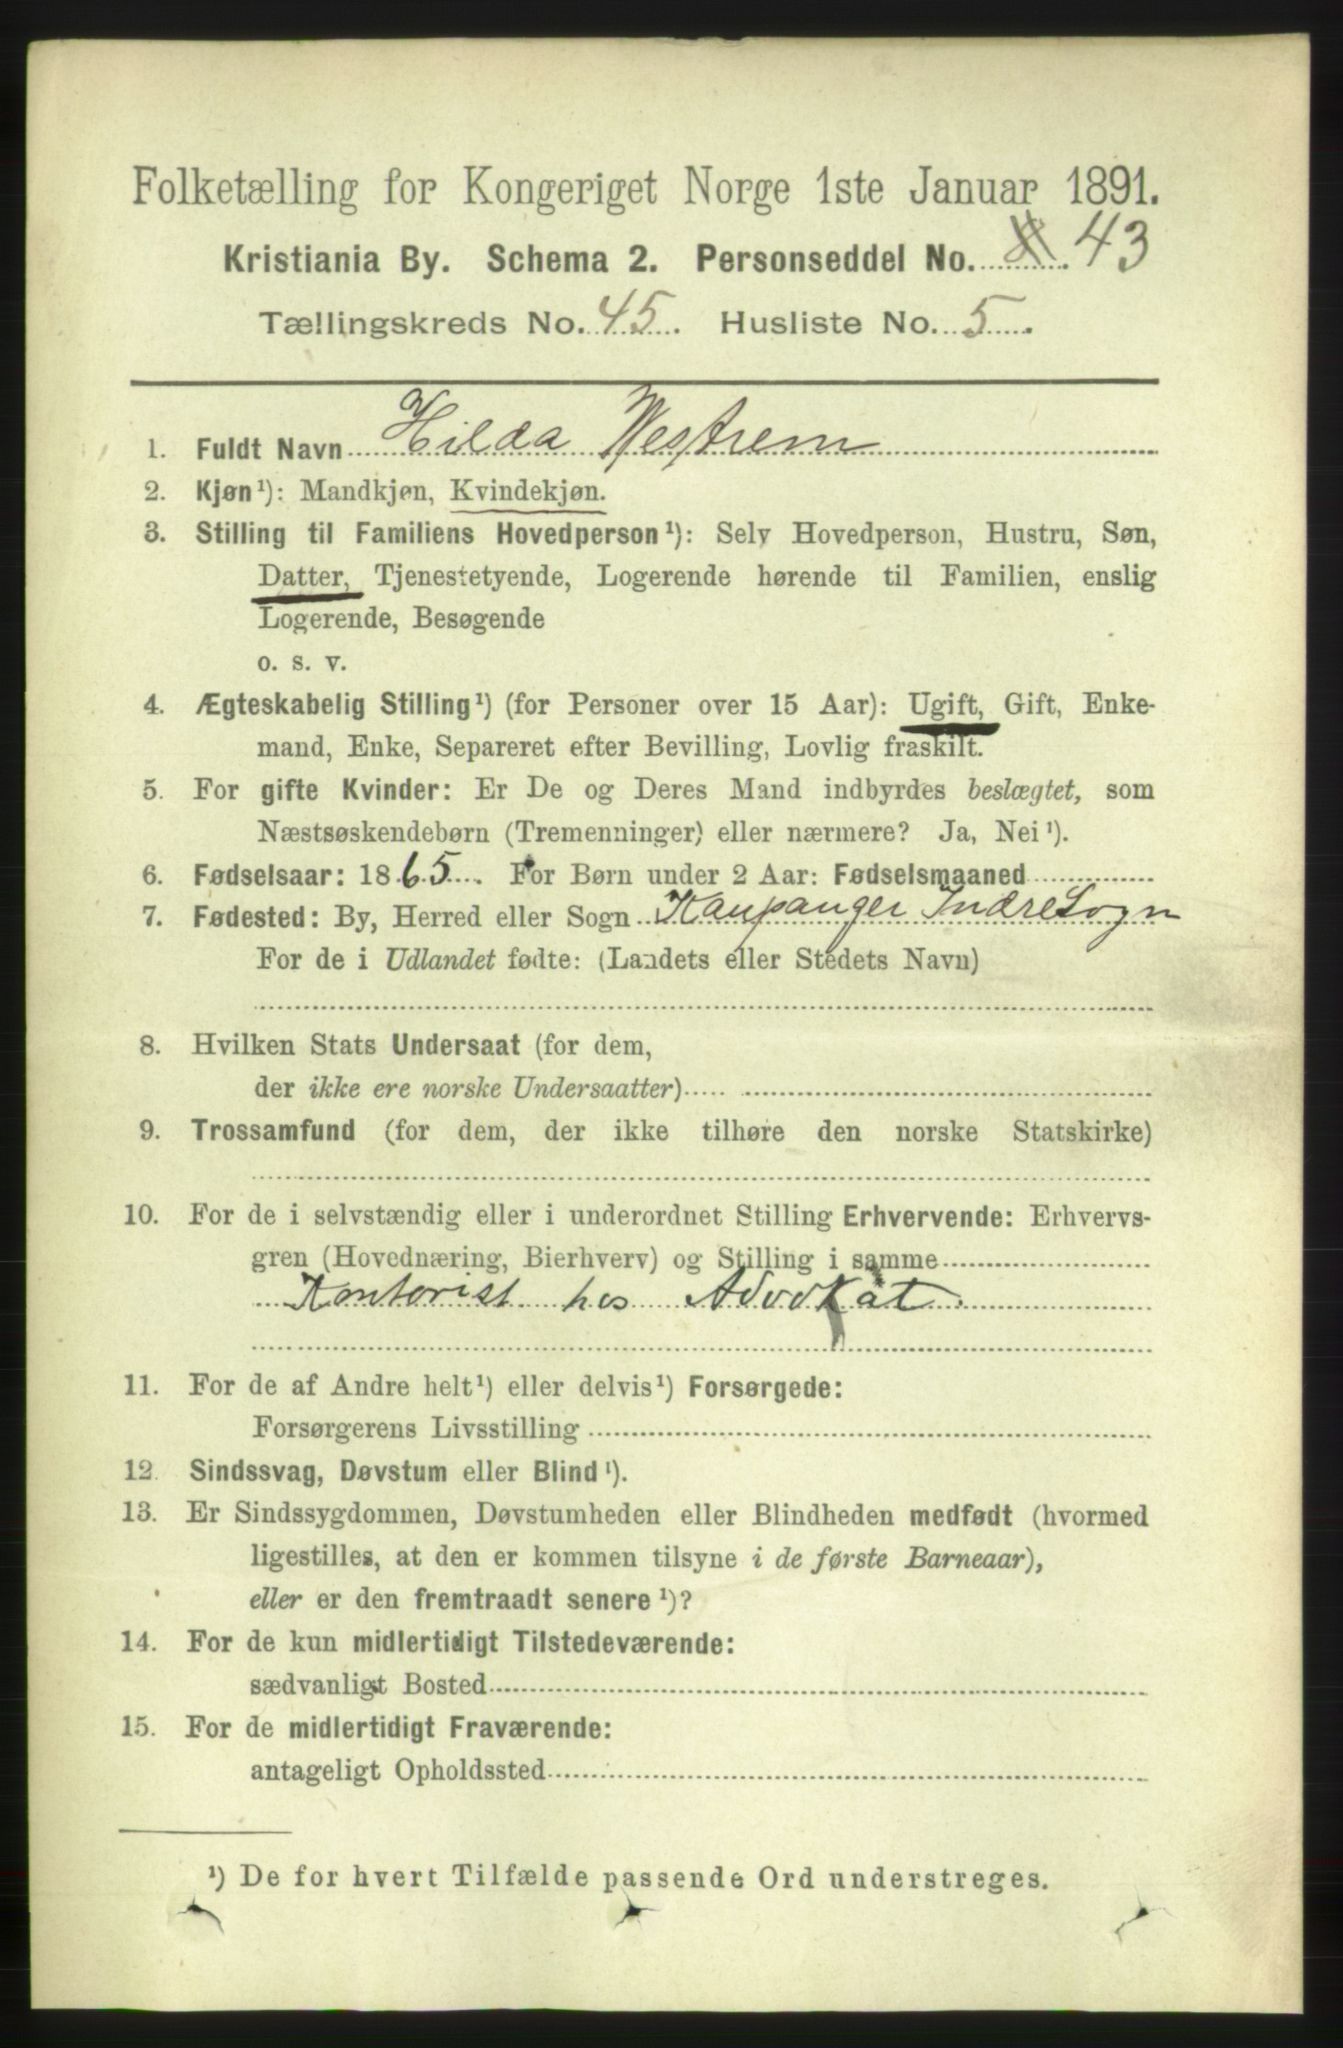 Folketælling for Kongeriget Norge 1ste Januar 1891.
Kristiania By. Schema 2. Personseddel No. 43
Tællingskreds No. 45. Husliste No. 5.
1. Fuldt Navn Hilda Westrem
2. Kjøn¹): Mandkjøn, Kvindekjøn.
3. Stilling til Familiens Hovedperson¹): Selv Hovedperson, Hustru, Søn,
Datter, Tjenestetyende, Logerende hørende til Familien, enslig
Logerende, Besøgende
o. s. v.
4. Ægteskabelig Stilling¹) (for Personer over 15 Aar): Ugift, Gift, Enke-
mand, Enke, Separeret efter Bevilling, Lovlig fraskilt.
5. For gifte Kvinder: Er De og Deres Mand indbyrdes beslægtet, som
Næstsøskendebørn (Tremenninger) eller nærmere? Ja, Nei¹).
6. Fødselsaar: 1865. For Børn under 2 Aar: Fødselsmaaned
7. Fødested: By, Herred eller Sogn Kaupanger Indre Sogn
For de i Udlandet fødte: (Landets eller Stedets Navn)
8. Hvilken Stats Undersaat (for dem,
der ikke ere norske Undersaatter)
9. Trossamfund (for dem, der ikke tilhøre den norske Statskirke)
10. For de i selvstændig eller i underordnet Stilling Erhvervende: Erhvervs-
gren (Hovednæring, Bierhverv) og Stilling i samme
Kontorist hos Advokat.
11. For de af Andre helt¹) eller delvis¹) Forsørgede:
Forsørgerens Livsstilling
12. Sindssvag, Døvstum eller Blind¹).
13. Er Sindssygdommen, Døvstumheden eller Blindheden medfødt (hvormed
ligestilles, at den er kommen tilsyne i de første Barneaar),
eller er den fremtraadt senere¹)?
14. For de kun midlertidigt Tilstedeværende:
sædvanligt Bosted
15. For de midlertidigt Fraværende:
antageligt Opholdssted
¹) De for hvert Tilfælde passende Ord understreges.